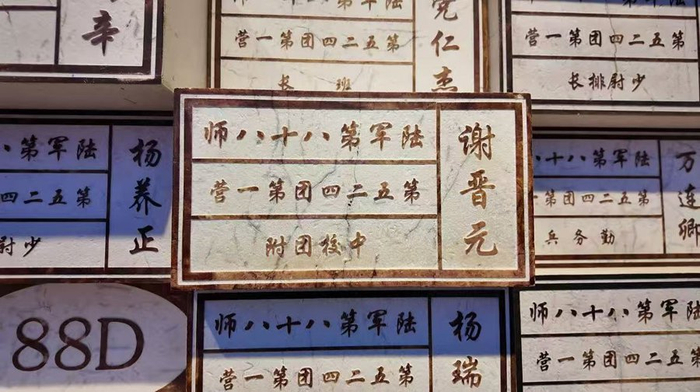 辛
党仁杰
第五二四团第一营
班长
第五二四团第一营
少尉排长
杨养正
陆军第八
第五二四
少尉
谢晋元
陆军第八十八师
第五二四团第一营
中校团附
万连卿
陆军第八十八
第五二四团第一
勤务兵
88D
杨瑞
陆军第八十八师
第五二四团第一营
陆军第八十八师
第五二四团第一营